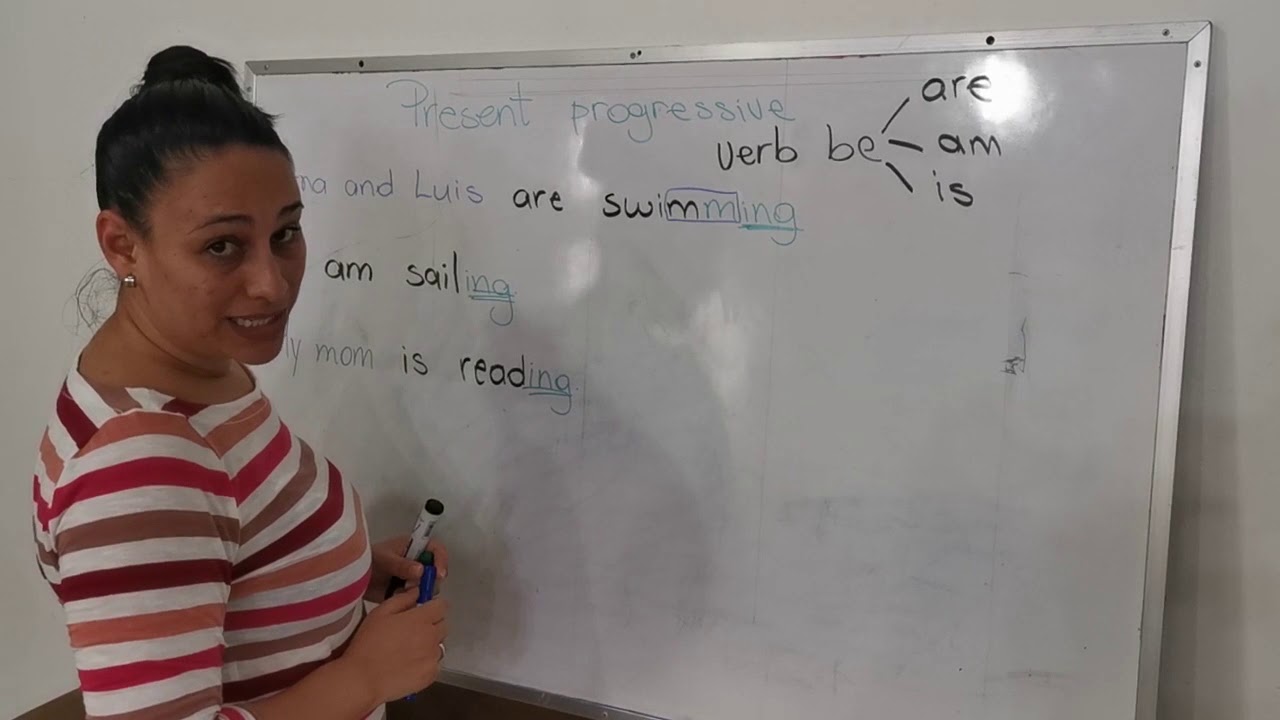 Present progressive
verb be
are
am
is
and Luis are swimming
am sailing
mom is reading.